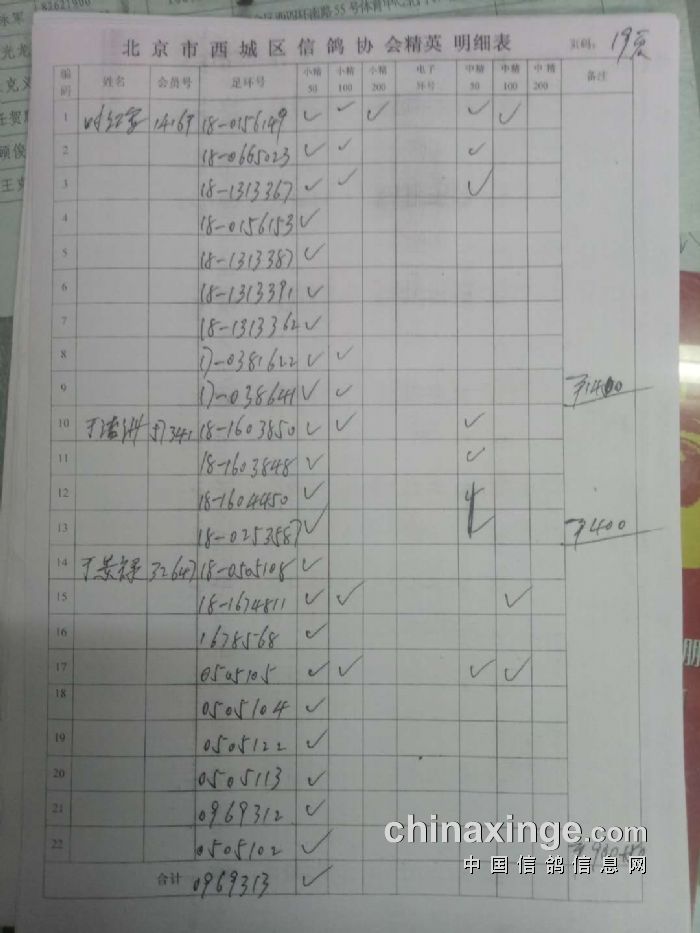 北京市西城区信鸽协会精英 明细表 页码: 19页
编码 姓名 会员号 足环号 小精50 小精100 小精200 电子环号 中精50 中精100 中精200 备注
1 14169 18-0156149 ✓ ✓ ✓ ✓ ✓
2 18-0665023 ✓ ✓ ✓
3 18-1313367 ✓ ✓ ✓
4 18-0156153 ✓
5 18-1313387 ✓
6 18-1313391 ✓
7 18-1313362 ✓
8 17-0381622 ✓ ✓
9 17-038641 ✓ ✓
10 18-1603850 ✓ ✓ ✓
11 18-1603848 ✓ ✓
12 18-1604450 ✓
13 18-0253587 ✓ ✓ ¥400
14 于景禄 32647 18-0505108 ✓
15 18-1674811 ✓ ✓ ✓
16 1678568 ✓
17 0505105 ✓ ✓ ✓ ✓
18 0505104 ✓
19 0505122 ✓
20 0505113 ✓
21 0969312 ✓
22 0505102 ✓
合计 0969313 ✓
chinaxinge.com
中国信鸽信息网